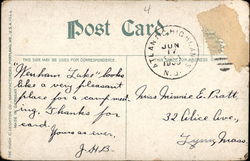 4
Post Card
THIS SIDE MAY BE USED FOR CORRESPONDENCE.
THIS
ADDRESS
ATLANTIC HIGHLANDS
JUN
17
N.J.
"Wenham Lake" looks
like a very pleasant
place for a camp meet
ing. Thanks for
card.
Yours as ever,
J.H.B.
Miss Minnie E. Pratt
32 Alice Ave,
Lynn, Mass